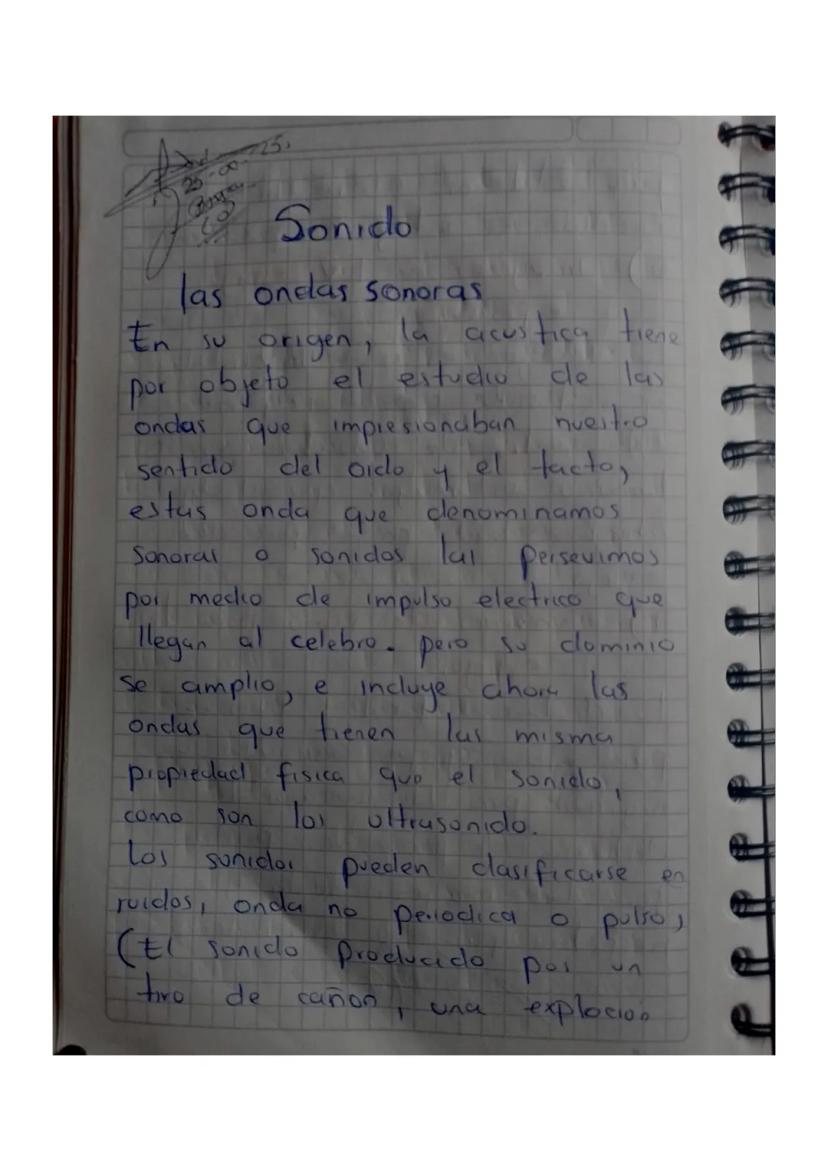 Sonido
las ondas sonoras
En su origen, la acustica tiene
por objeto el estudio de las
ondas que impresionaban nuestro
sentido del oido y el tacto,
estas onda que denominamos
sonoras o sonidos las persevimos
por medio de impulso electrico que
llegan al celebro. pero su dominio
se amplio, e incluye ahora las
ondas que tienen las misma
propiedad fisica que el sonido,
como son los ultrasonido.
Los sonidos pueden clasificarse en
ruidos, onda no periodica o pulso,
(El sonido producido por un
tiro de cañon, una explocion